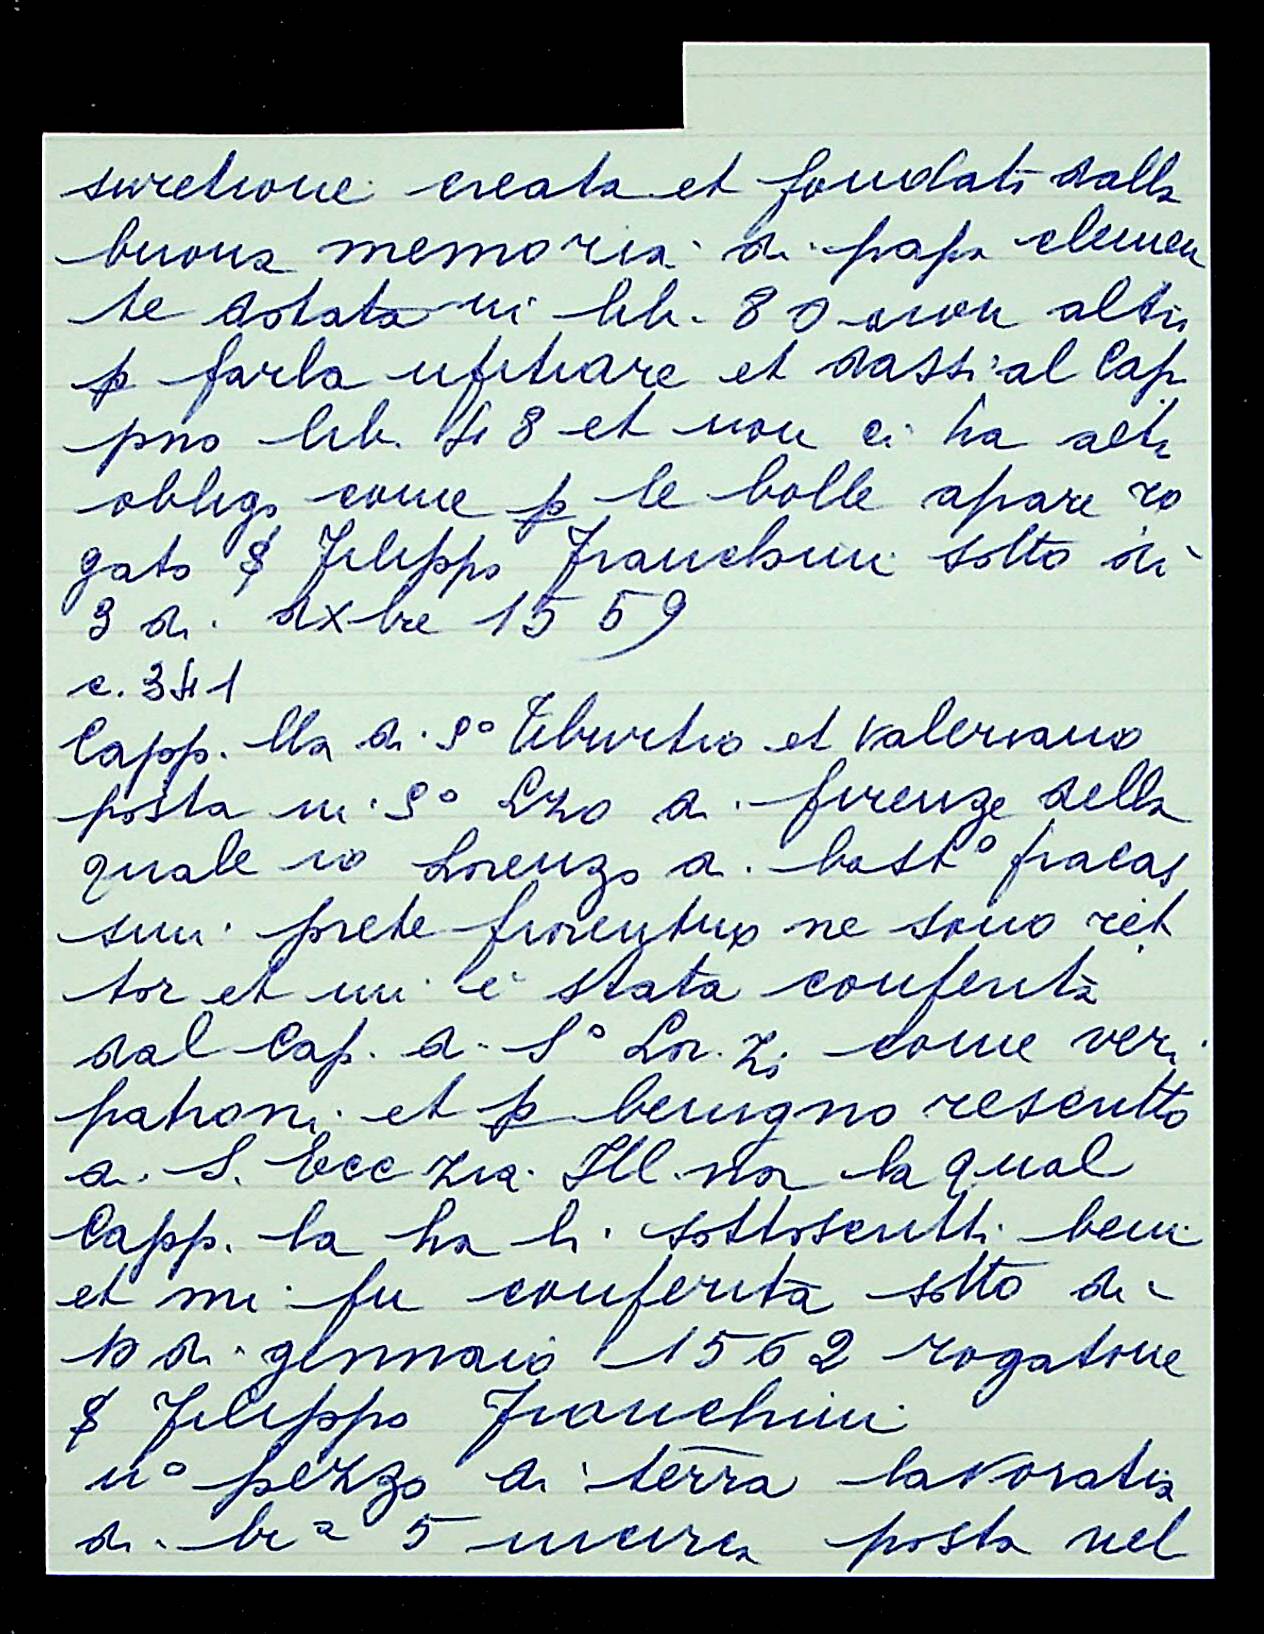 suretione creata et fondati dalla
buona memoria di papa clemen
te dotata in lib. 80 non altri
p farla ufitiare et dassi al Cap
pno lib. 48 et non ci ha altr
obligo come p le bolle apare ro
gato $ Filippo Franchini sotto di
3 di dxbre 1559
c. 341
Capp.lla di S° Tiburtio et Valeriano
posta in S° Lzo di firenze della
quale io Lorenzo di bast° fracas
sini prete fiorentino ne sono ret
tor et mi è stata conferita
dal Cap. di S° Lor.zo come veri
patroni et p benigno rescritto
di S. Ecc zia Ill.ma la qual
Capp.la ha li sottoscritti beni
et mi fu conferita sotto di
10 di gennaio 1562 rogatone
$ Filippo Franchini
un° pezzo di terra lavoratia
di br a 5 incirca posta nel